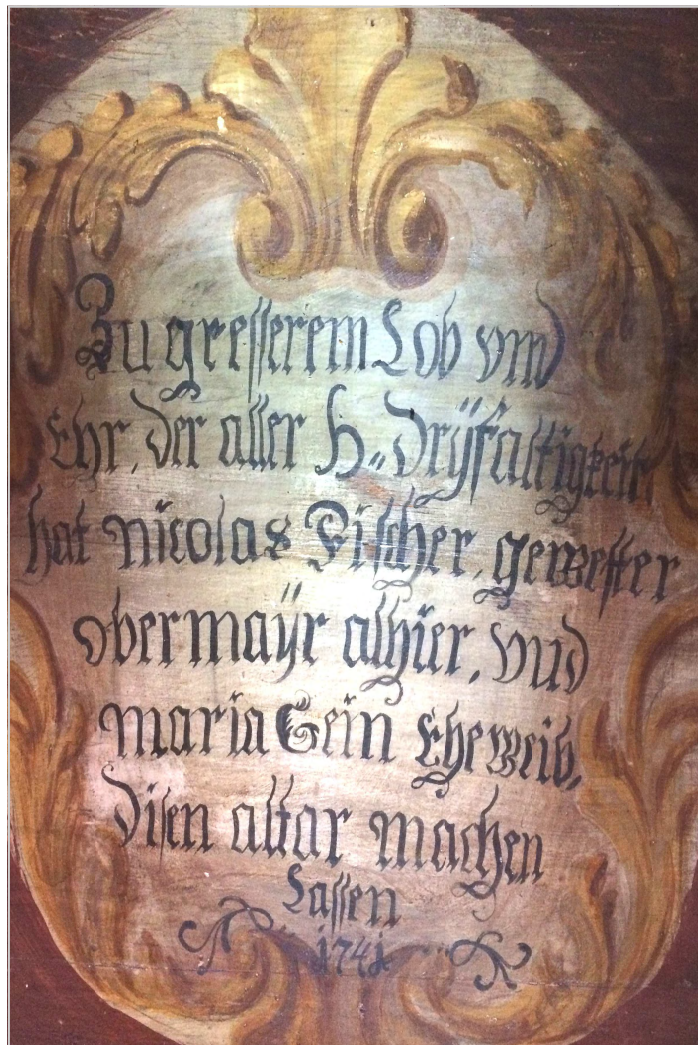 Zu gresserem Lob vnd
Ehr, der aller H: Drÿfaltigkeit
hat nicolas Fischer, gewester
obermaÿr alhier, vnd
maria Sein Eheweib,
Disen altar machen
Lassen
1741